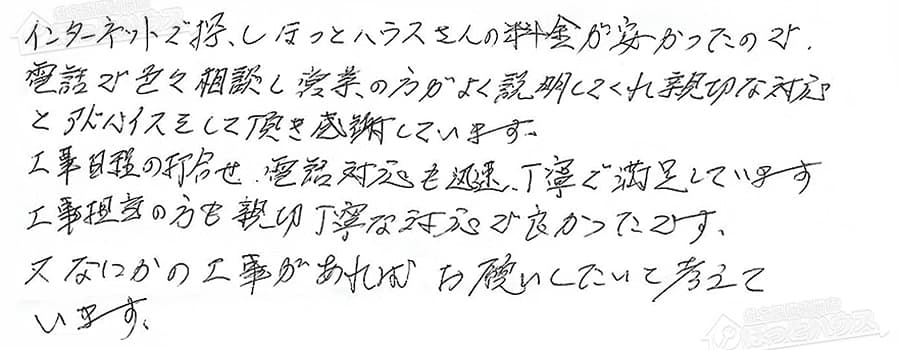 インターネットで探しほっとハウスさんの料金が安かったので、
電話で色々相談し営業の方がよく説明してくれ親切な対応
とアドバイスをして頂き感謝しています。
工事日程の打合せ、電話対応も迅速、丁寧で満足しています
工事担当の方も親切丁寧な対応で良かったです。
又なにかの工事があればお願いしたいと考えて
います。
ほっとハウス